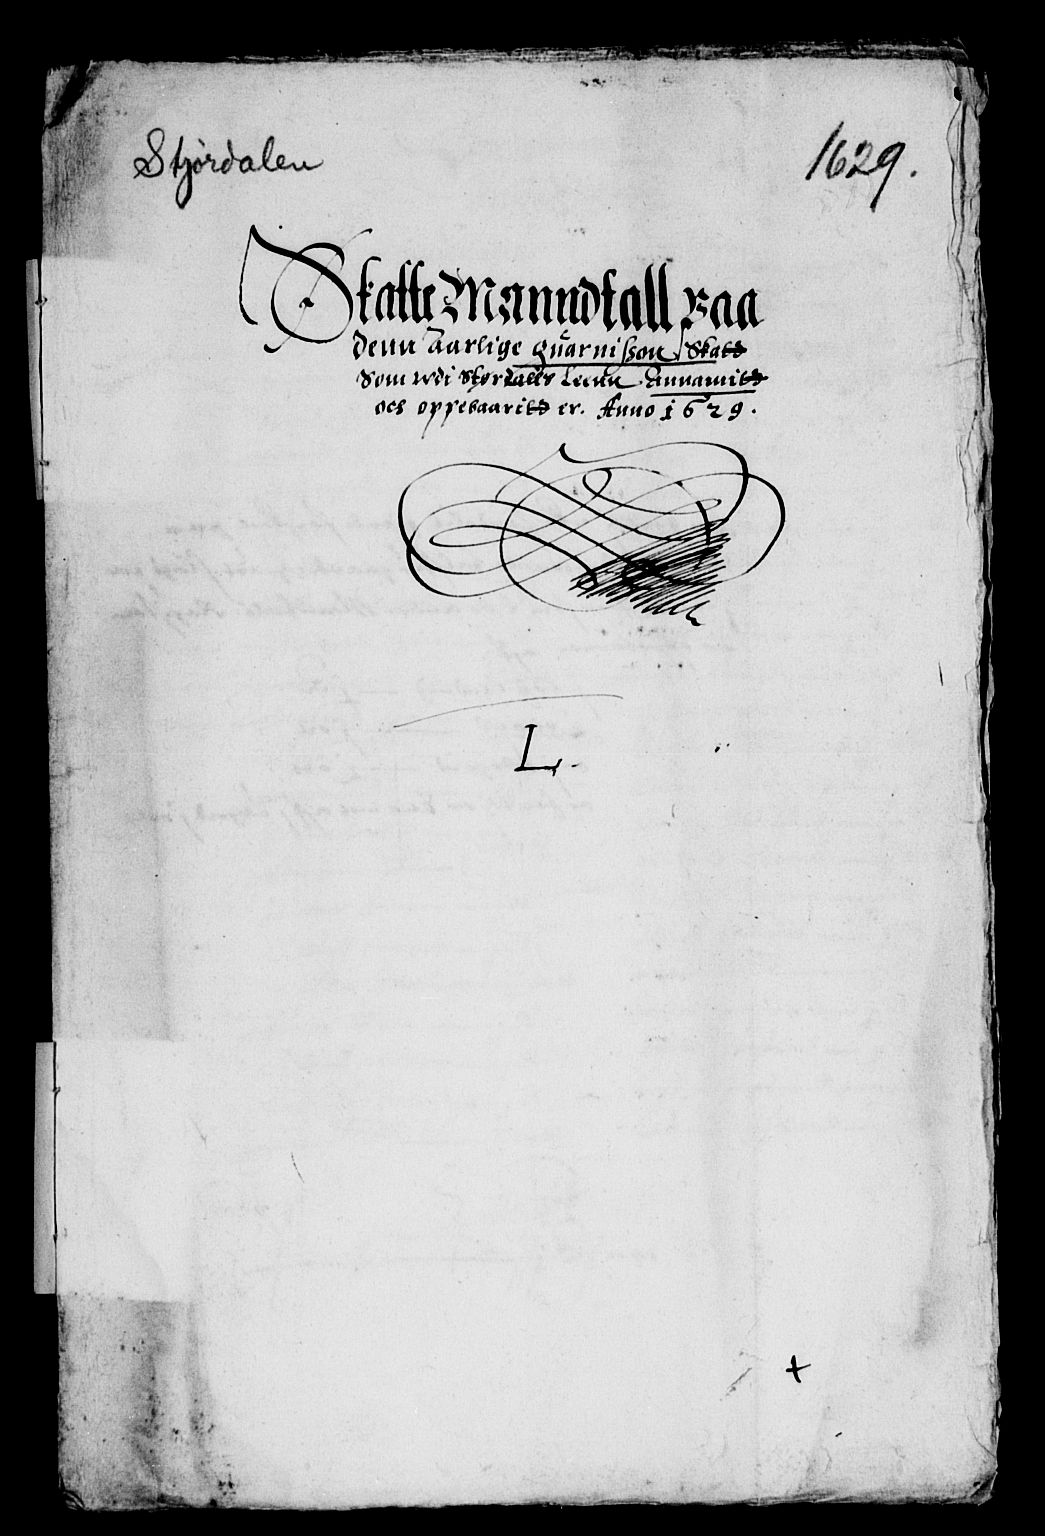 Stjørdalen
1629.
Skatte Manndtall paa
denn Aarlige quarnisson Skatt
Som udi Størdalls Leenn Annamitt
och oppebaaritt er. Anno 1629.
L.